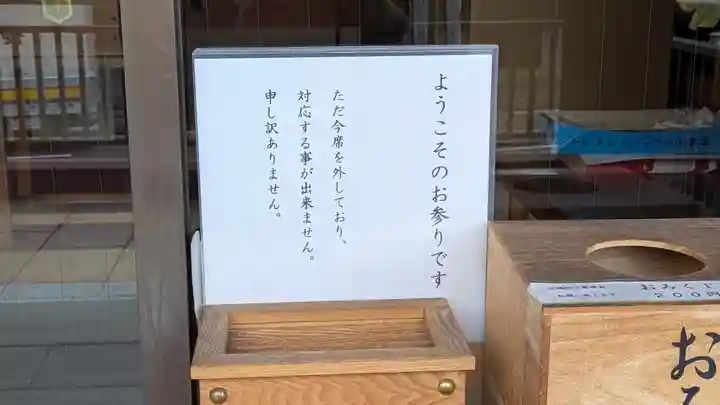 ようこそのお参りです
ただ今席を外しており、
対応する事が出来ません。
申し訳ありません。
おみくじ
２００円